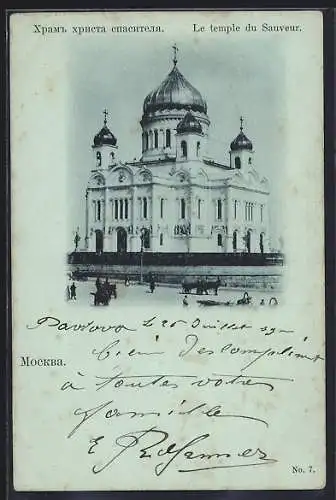 Храмъ христа спасителя. Le temple du Sauveur.
le 25 Juillet
bien des compliments
Москва.
à toutes votre
famille
E
No. 7.